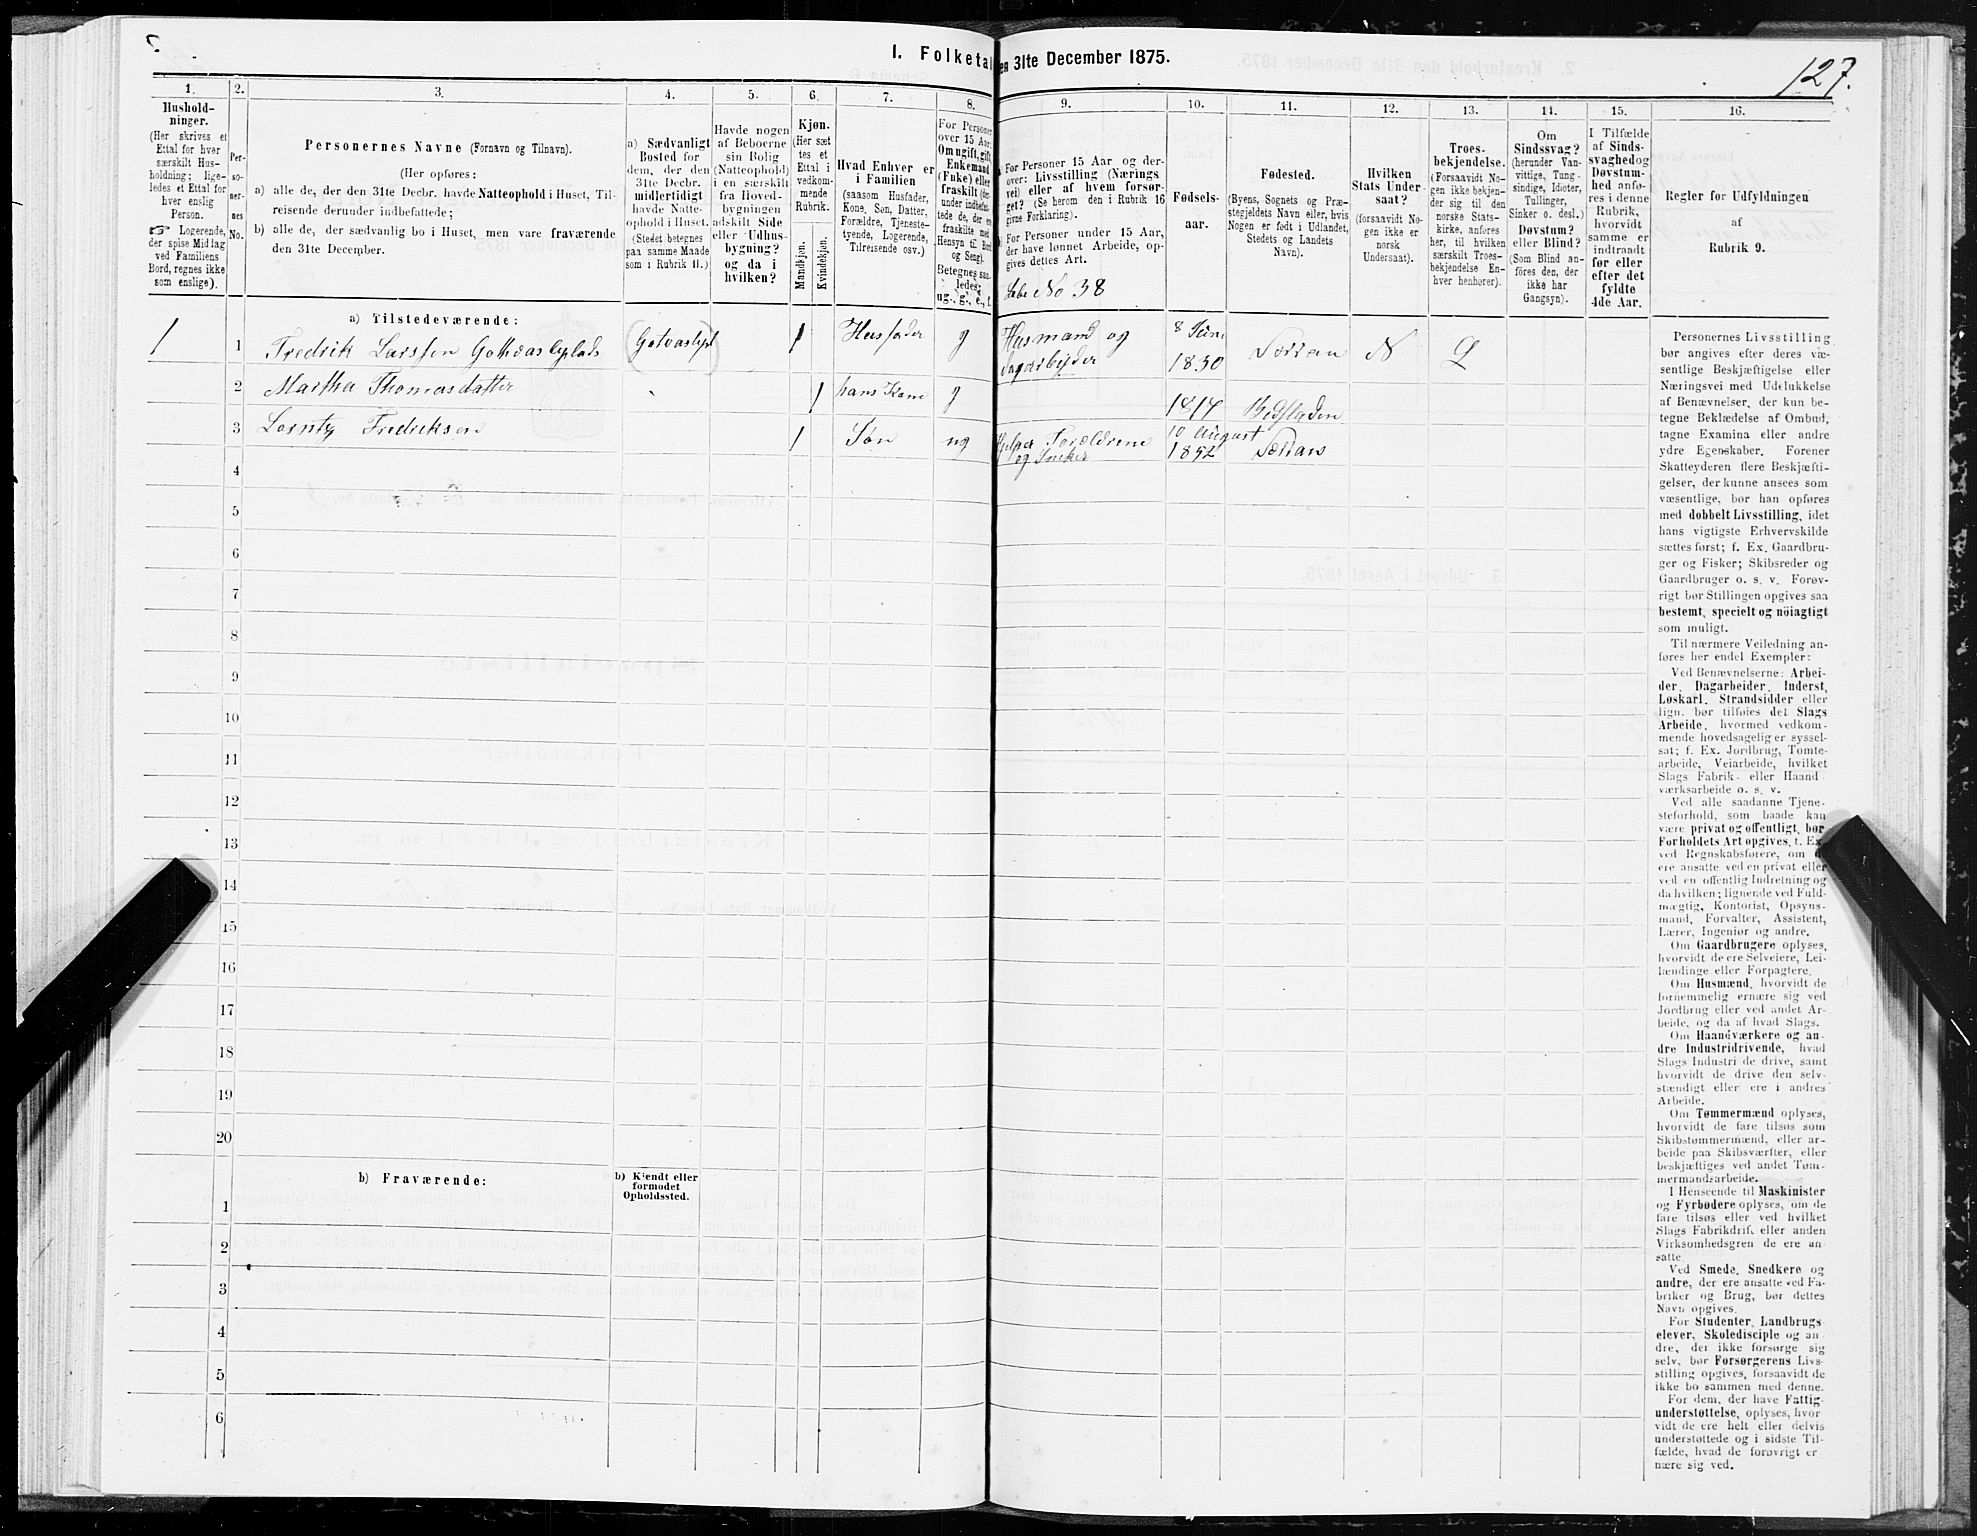 I. Folketal
en 31te December 1875.
127.
1.
Hushold-
ninger.
(Her skrives et
Ettal for hver
særskilt Hus-
holdning; lige-
ledes et Ettal for
hver enslig
Person.
☞ Logerende,
der spise Middag
ved Familiens
Bord, regnes ikke
som enslige).
2.
Per-
so-
ner-
nes
No.
3.
Personernes Navne (Fornavn og Tilnavn).
(Her opføres:
a) alle de, der den 31te Decbr. havde Natteophold i Huset, Til-
reisende derunder indbefattede;
b) alle de, der sædvanlig bo i Huset, men vare fraværende
den 31te December.
4.
a) Sædvanligt
Bosted for
dem, der den
31te Decbr.
midlertidigt
havde Natte-
ophold i Huset.
(Stedet betegnes
paa samme Maade
som i Rubrik 11.)
5.
Havde nogen
af Beboerne
sin Bolig
(Natteophold)
i en særskilt
fra Hoved-
bygningen
adskilt Side
eller Udhus-
bygning?
og da i
hvilken?
6.
Kjøn.
(Her sæt
tes et
Ettal i
vedkom-
mende
Rubrik.
Mandkjøn.
Kvindekjøn.
7.
Hvad Enhver er
i Familien
(saasom Husfader,
Kone, Søn, Datter,
Forældre, Tjeneste-
tyende, Logerende,
Tilreisende osv.)
8.
For Personer
over 15 Aar:
Om ugift, gift,
Enkemand
(Enke) eller
fraskilt (der-
under indbefat-
tede de, der ere
fraskilte med
Hensyn til Bord
og Seng).
Betegnes saa-
ledes:
ug., g., e., f.
9.
For Personer 15 Aar og der-
over: Livsstilling (Nærings
vei) eller af hvem forsør-
get? (Se herom den i Rubrik 16
givne Forklaring).
b) For Personer under 15 Aar,
der have lønnet Arbeide, op-
gives dettes Art.
Løbe No 38
10.
Fødsels-
aar.
11.
Fødested.
(Byens, Sognets og Præ-
stegjeldets Navn eller, hvis
Nogen er født i Udlandet,
Stedets og Landets
Navn).
12.
Hvilken
Stats Under-
saat?
(forsaavidt No-
gen ikke er
norsk
Undersaat).
13.
Troes-
bekjendelse.
(Forsaavidt No-
gen ikke bekjen-
der sig til den
norske Stats-
kirke, anføres
her, til hvilken
særskilt Troes-
bekjendelse En-
hver henhører).
14.
Om
Sindssvag?
(herunder Van-
vittige, Tung-
sindige, Idioter,
Tullinger,
Sinker o. desl.)
Døvstum?
eller Blind?
(Som Blind an-
føres den, der
ikke har
Gangsyn).
15.
I Tilfælde
af Sinds-
svaghed og
Døvstum-
hed anfø-
res i denne
Rubrik,
hvorvidt
samme er
indtraadt
før eller
efter det
fyldte
4de Aar.
16.
Regler for Udfyldningen
af
Rubrik 9.
a) Tilstedeværende:
1 1 Fredrik Larssen (Gotvaslypl) 1 Husfader g Husmand og 8 Juni
Dagarbejder 1830 N L
2 Martha Thomasdatter 1 hans Kone g
3 Fredriksen 1 Søn ug Hjelper Forældrene 10 August
og 1852
4
5
6
7
8
9
10
11
12
13
14
15
16
17
18
19
20
b) Fraværende:
b) Kjendt eller
formodet
Opholdssted.
1
2
3
4
5
6
Personernes Livsstilling
bør angives efter deres væ-
sentlige Beskjæftigelse eller
Næringsvei med Udelukkelse
af Benævnelser, der kun be-
tegne Beklædelse af Ombud,
tagne Examina eller andre
ydre Egenskaber. Forener
Skatteyderen flere Beskjæfti-
gelser, der kunne ansees som
væsentlige, bør han opføres
med dobbelt Livsstilling, idet
hans vigtigste Erhvervskilde
sættes først; f. Ex. Gaardbru-
ger og Fisker; Skibsreder og
Gaardbruger o. s. v. Forøv-
rigt bør Stillingen opgives saa
bestemt, specielt og nöiagtigt
som muligt.
Til nærmere Veiledning an-
føres her endel Exempler:
Ved Benævnelserne: Arbei-
der, Dagarbeider, Inderst,
Løskarl, Strandsidder eller
lign. bør tilføies det Slags
Arbeide, hvormed vedkom-
mende hovedsagelig er syssel-
sat; f. Ex. Jordbrug, Tomte-
arbeide, Veiarbeide, hvilket
Slags Fabrik- eller Haand-
værksarbeide o. s. v.
Ved alle saadanne Tjene-
steforhold, som baade kan
være privat og offentligt, bør
Forholdets Art opgives, f. Ex.
ved Regnskabsførere, om de
ere ansatte ved en privat eller
ved en offentlig Indretning og
da hvilken; lignende ved Fuld-
mægtig, Kontorist, Opsyns-
mand, Forvalter, Assistent,
Lærer, Ingeniør og andre.
Om Gaardbrugere oplyses,
hvorvidt de ere Selveiere, Lei-
lændinge eller Forpagtere.
Om Husmænd, hvorvidt de
fornemmelig ernære sig ved
Jordbrug eller ved andet Ar-
beide, og da af hvad Slags.
Om Haandværkere og an-
dre Industridrivende, hvad
Slags Industri de drive, samt
hvorvidt de drive den selv-
stændigt eller ere i andres
Arbeide.
Om Tømmermænd oplyses,
hvorvidt de fare tilsøs som
Skibstømmermænd, eller ar-
beide paa Skibsværfter, eller
beskjæftiges ved andet Tøm-
mermandsarbeide.
I Henseende til Maskinister
og Fyrbødere oplyses, om de
fare tilsøs eller ved hvilket
Slags Fabrikdrift eller anden
Virksomhedsgren de ere an-
satte.
Ved Smede, Snedkere og
andre, der ere ansatte ved Fa-
briker og Brug, bør dettes
Navn opgives.
For Studenter, Landbrugs-
elever, Skoledisciple og an-
dre, der ikke forsørge sig
selv, bør Forsørgerens Livs-
stilling opgives, forsaavidt de
ikke bo sammen med denne.
For dem, der have Fattig-
understøttelse, oplyses, hvor-
vidt de ere helt eller delvis
understøttede og i sidste Til-
fælde, hvad de forøvrigt er-
nære sig ved.